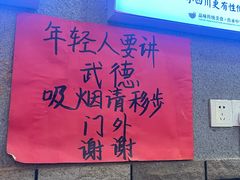 小四川更有性
年轻人要讲
武德
吸烟请移步
门外
谢谢